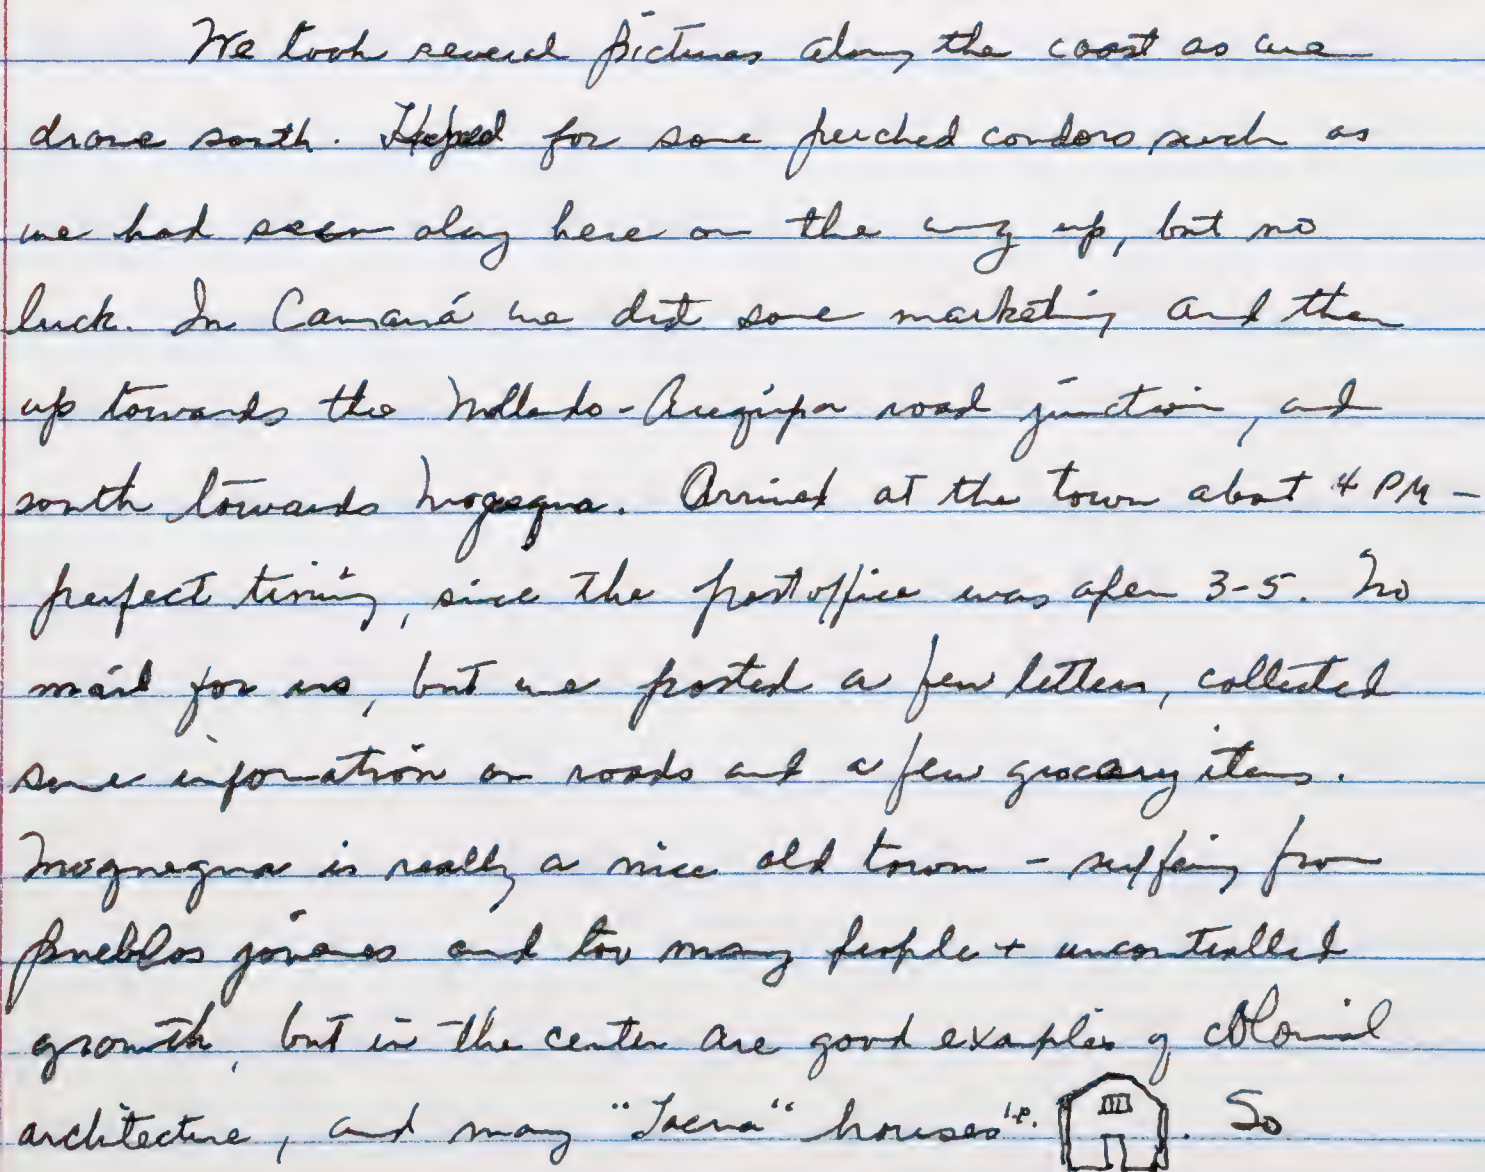 We took several pictures along the coast as we
drove south. Hoped for some perched condors such as
we had seen along here on the way up, but no
luck. In Camaná we did some marketing and then
up towards the Mollendo-Arequipa road junction, and
south towards Moquegua. Arrived at the town about 4 PM -
perfect timing, since the post office was open 3-5. No
mail for us, but we posted a few letters, collected
some information on roads and a few grocery items.
Moquegua is really a nice old town - suffering from
pueblos jovenes and too many people + uncontrolled
growth, but in the center are good examples of colonial
architecture, and many "Tacna" houses i.e. . So